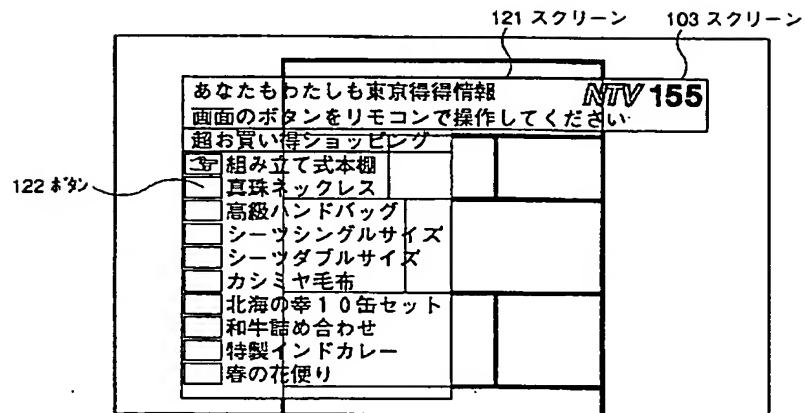 121 スクリーン
103 スクリーン
あなたもわたしも東京得得情報
NTV 155
画面のボタンをリモコンで操作してください
超お買い得ショッピング
組み立て式本棚
122 ボタン
真珠ネックレス
高級ハンドバッグ
シーツシングルサイズ
シーツダブルサイズ
カシミヤ毛布
北海の幸10缶セット
和牛詰め合わせ
特製インドカレー
春の花便り